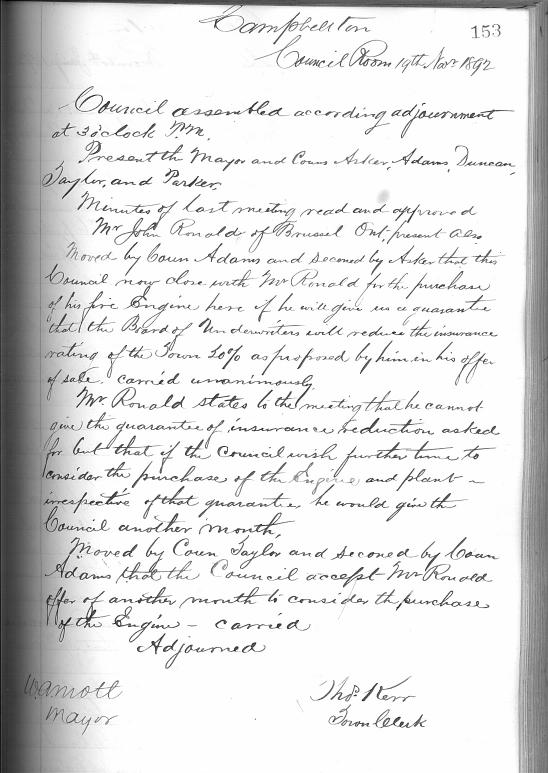 Campbellton
153
Council Room 19th Novr 1892
Council assembled according adjournment
at 3 oclock P.M.
Present the Mayor and Couns Asker, Adams, Duncan,
Taylor, and Parker.
Minutes of last meeting read and approved
Mr John Ronald of Brussel Ont, present also
Moved by Coun Adams and seconed by Asker that this
Council now close with Mr Ronald for the purchase
of his fire Engine here if he will give us a guarantee
that the Board of Underwriters will reduce the insurance
rating of the Town 20% as proposed by him in his offer
of sale. carried unanimously.
Mr Ronald states to the meeting that he cannot
give the guarantee of insurance reduction asked
for but that if the Council wish further time to
consider the purchase of the Engine and plant ~
irrespective of that guarantee, he would give the
Council another month,
Moved by Coun Taylor and seconed by Coun
Adams that the Council accept Mr Ronald
offer of another month to consider th purchase
of the Engine - carried
Adjourned
Thos Kerr
Mayor
Town Clerk